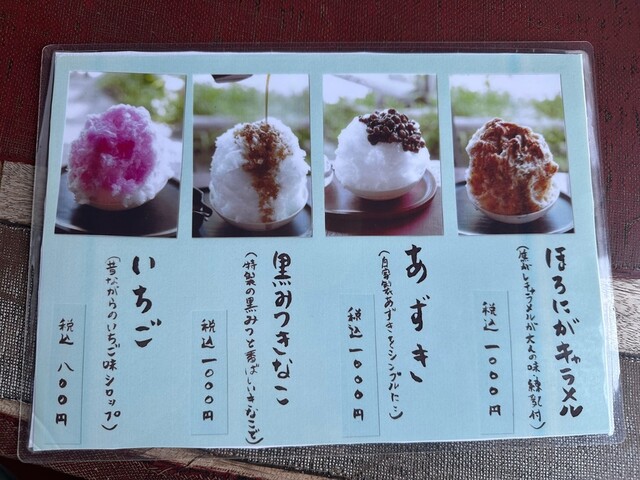 ほろにがキャラメル
(焦がしキャラメルが大人の味・練乳付)
税込 一〇〇〇円
あずき
(自家製あずきをシンプルに)
税込 一〇〇〇円
黒みつきなこ
(特製の黒みつと香ばしいきなこで)
税込 一〇〇〇円
いちご
(昔ながらのいちご味シロップ)
税込 八〇〇円